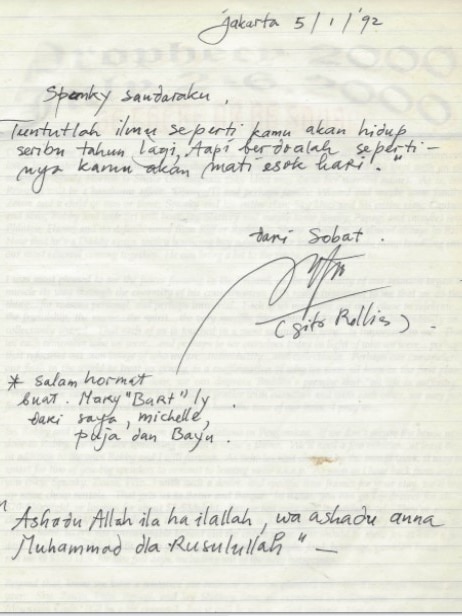 Jakarta 5/1/'92
Spunky saudaraku,
Tuntutlah ilmu seperti kamu akan hidup
seribu tahun lagi, tapi berdoalah seperti-
nya kamu akan mati esok hari."
dari Sobat.
(Gito Rollies).
* salam hormat
buat. Mary "Bart" ly
dari saya, michelle,
puja dan Bayu.
" Ashadu Allah ila ha ilallah, wa ashadu anna
Muhammad dla Rusulullah" —